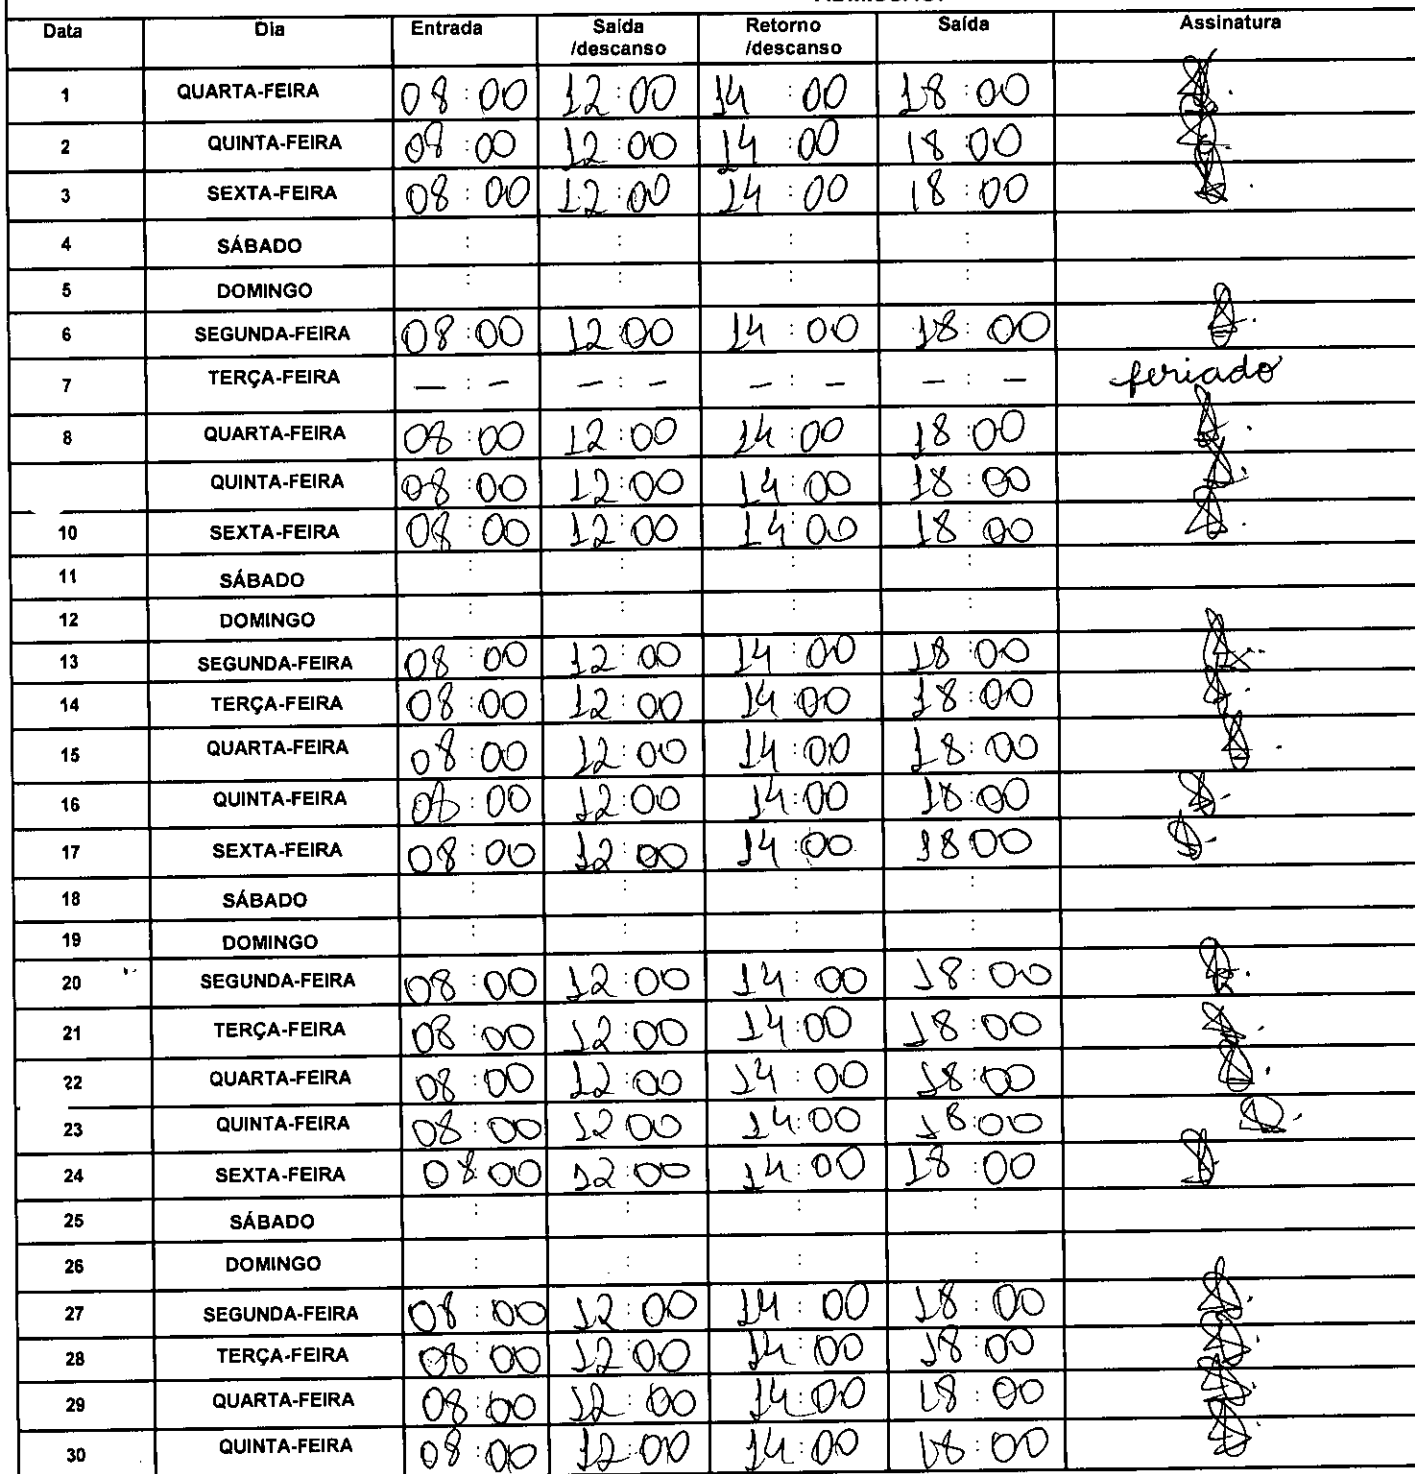 Data Dia Entrada Saída /descanso Retorno /descanso Saída Assinatura
1 QUARTA-FEIRA 08:00 12:00 14:00 18:00
2 QUINTA-FEIRA 08:00 12:00 14:00 18:00
3 SEXTA-FEIRA 08:00 12:00 14:00 18:00
4 SÁBADO : : : :
5 DOMINGO : : : :
6 SEGUNDA-FEIRA 08:00 12:00 14:00 18:00
7 TERÇA-FEIRA —:– –:– –:– –:– feriado
8 QUARTA-FEIRA 08:00 12:00 14:00 18:00
QUINTA-FEIRA 08:00 12:00 14:00 18:00
10 SEXTA-FEIRA 08:00 12:00 14:00 18:00
11 SÁBADO : : : :
12 DOMINGO : : : :
13 SEGUNDA-FEIRA 08:00 12:00 14:00 18:00
14 TERÇA-FEIRA 08:00 12:00 14:00 18:00
15 QUARTA-FEIRA 08:00 12:00 14:00 18:00
16 QUINTA-FEIRA 08:00 12:00 14:00 18:00
17 SEXTA-FEIRA 08:00 12:00 14:00 18:00
18 SÁBADO : : : :
19 DOMINGO : : : :
20 SEGUNDA-FEIRA 08:00 12:00 14:00 18:00
21 TERÇA-FEIRA 08:00 12:00 14:00 18:00
22 QUARTA-FEIRA 08:00 12:00 14:00 18:00
23 QUINTA-FEIRA 08:00 12:00 14:00 18:00
24 SEXTA-FEIRA 08:00 12:00 14:00 18:00
25 SÁBADO : : : :
26 DOMINGO : : : :
27 SEGUNDA-FEIRA 08:00 12:00 14:00 18:00
28 TERÇA-FEIRA 08:00 12:00 14:00 18:00
29 QUARTA-FEIRA 08:00 12:00 14:00 18:00
30 QUINTA-FEIRA 08:00 12:00 14:00 18:00